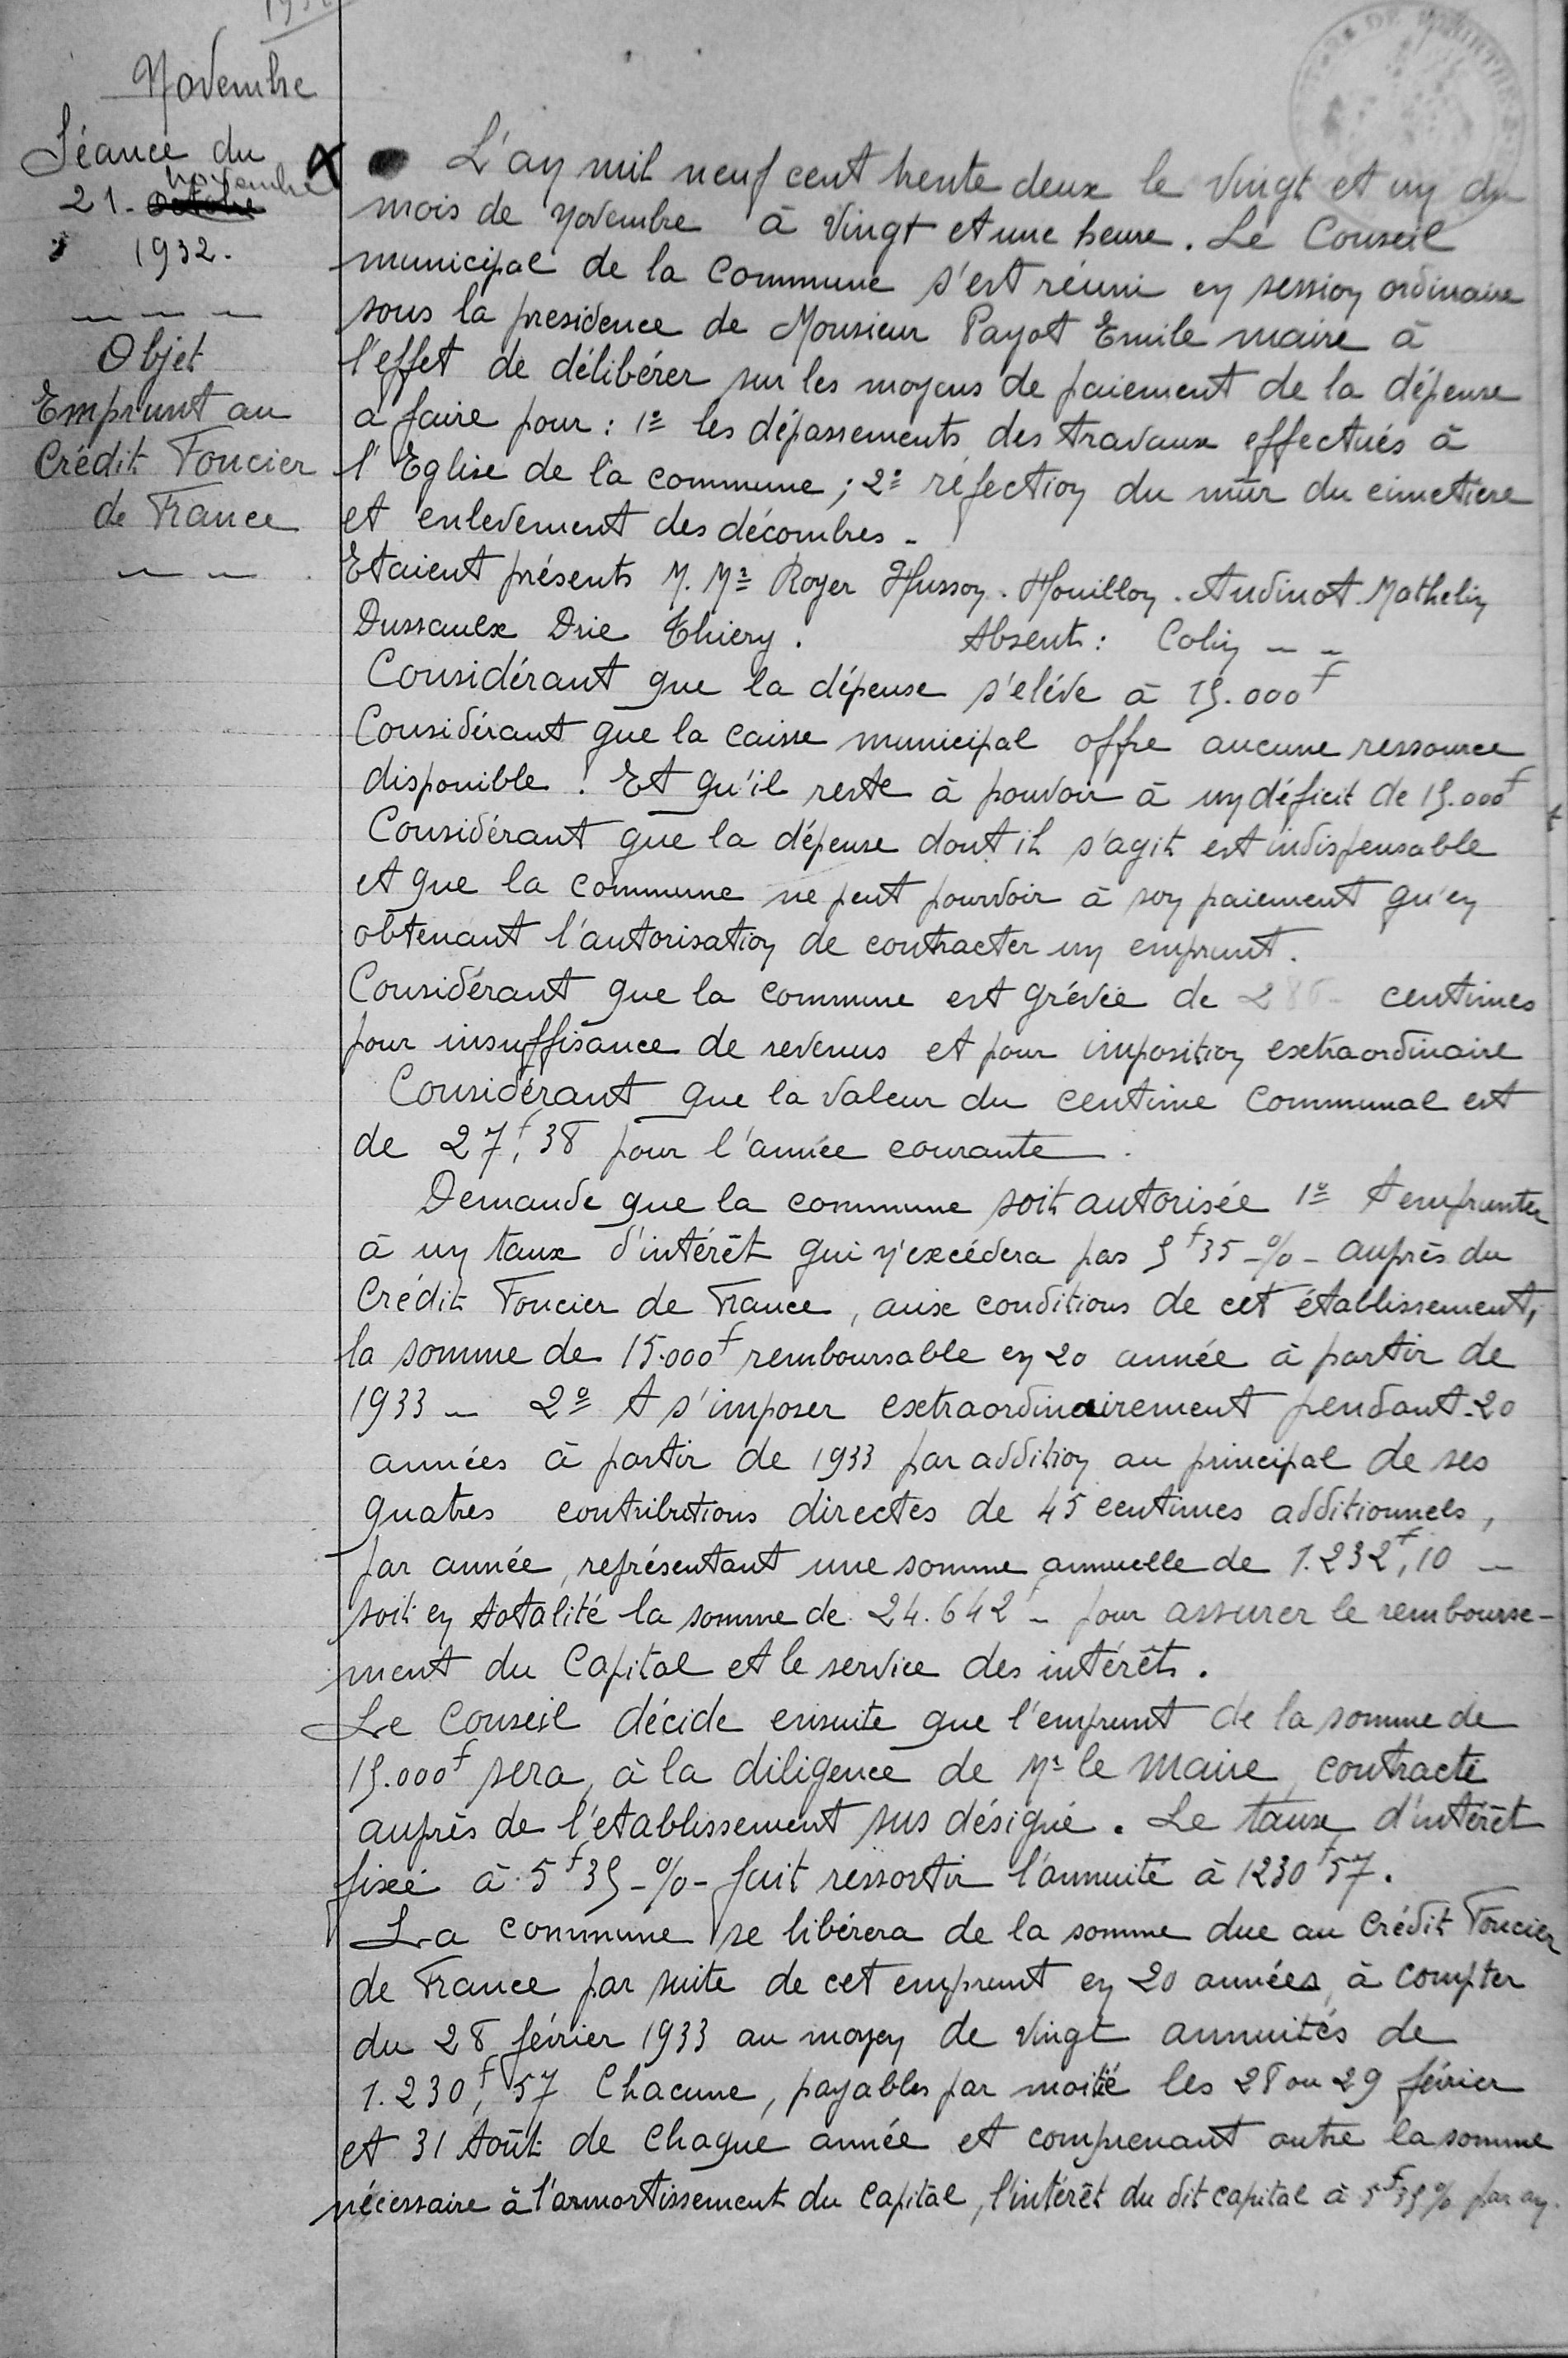 Novembre
Séance du
novembre
21. octobre
1932.
Objet
Emprunt au
Crédit Foncier
de France
L'an mil neuf cent trente deux le vingt et un du
mois de novembre à vingt et une heure. Le Conseil
municipal de la Commune s'est réuni en session ordinaire
sous la presidence de Monsieur Payot Emile maire à
l'effet de délibérer sur les moyens de paiement de la dépense
a faire pour : 1º les dépassements des travaux effectués à
l'Eglise de la commune ; 2º réfection du mûr du cimetiere
et enlevement des décombres -
Etaient présents M. Mr Royer Husson. Houillon. Audinot. Mathelin
Dussaulx Drie Thiery. Absent : Colin - -
Considérant que la dépense s'elève à 15.000f
Considérant que la caisse municipal offre aucune ressource
disponible. Et qu'il reste à pouvoir à un déficit de 15.000f
Considérant que la dépense dont il s'agit est indispensable
et que la commune ne peut pourvoir à son paiement qu'en
obtenant l'autorisation de contracter un emprunt.
Considérant que la commune est grévée de centimes
pour insuffisance de revenus et pour imposition extraordinaire
Considérant que la valeur du centime communal est
de 27f,38 pour l'année courante.
Demande que la commune soit autorisée 1º A emprunter
à un taux d'intérêt qui n'excédera pas 5f35 -%- auprès du
Crédit Foncier de France, aux conditions de cet établissement,
la somme de 15.000f remboursable en 20 année à partir de
1933 - 2º A s'imposer extraordinairement pendant 20
années à partir de 1933 par addition au principal de ses
quatres contributions directes de 45 centimes additionnels,
par année, représentant une somme annuelle de 1.232f,10 -
soit en totalité la somme de 24.642f - pour assurer le rembourse-
ment du Capital et le service des intérêts.
Le Conseil décide ensuite que l'emprunt de la somme de
15.000f sera, à la diligence de Mr le Maire, contracté
auprès de l'etablissement sus désigné. Le taux d'intérêt
fixé à 5f35 -%- fait ressortir l'annuité à 1230f57.
La commune se libérera de la somme due au Crédit Foncier
de France par suite de cet emprunt en 20 années, à compter
du 28 février 1933 au moyen de vingt annuités de
1.230f,57 Chacune, payables par moitié les 28 ou 29 février
et 31 Août de Chaque année et comprenant outre la somme
nécessaire à l'amortissement du Capital, l'intérêt du dit capital à 5f35% par an.